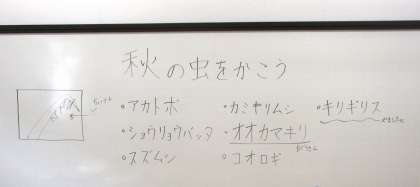 秋の虫をかこう
・アカトボ ・カミキリムシ ・キリギリス
・ショウリョウバッタ ・オオカマキリ
・スズムシ ・コオロギ